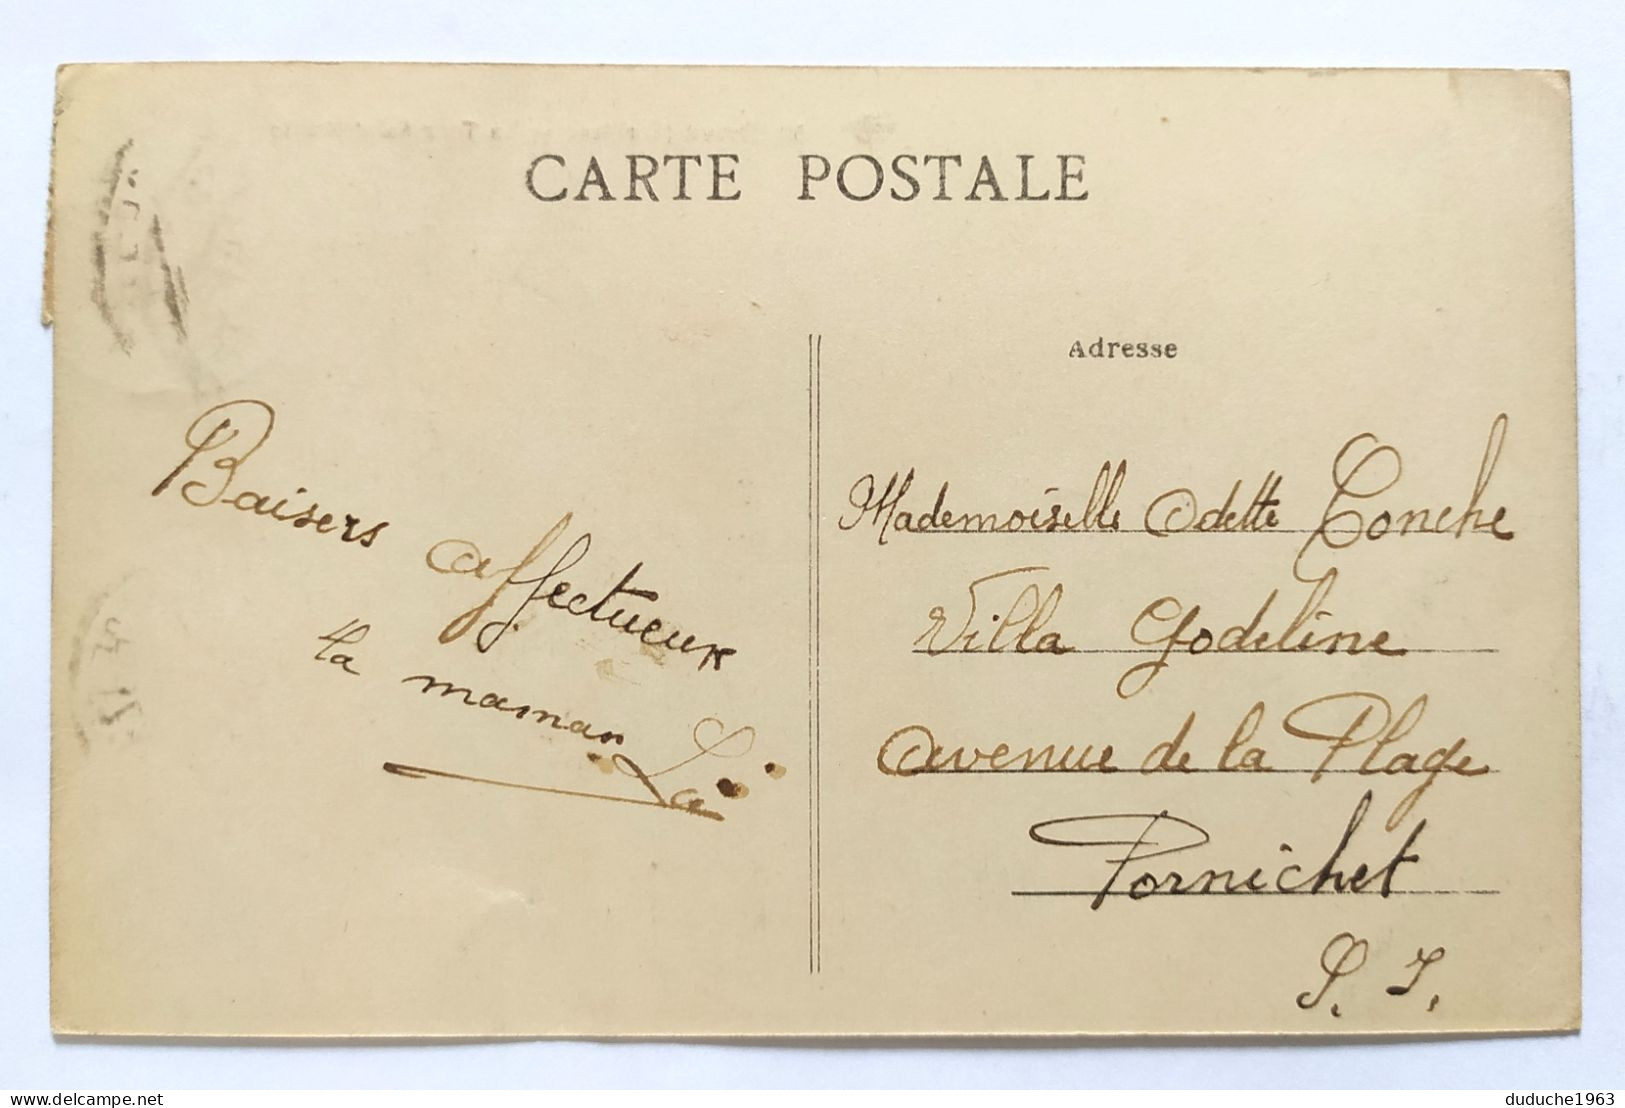 CARTE POSTALE
Adresse
Baisers affectueux
ta maman
Mademoiselle Odette Conche
Villa Godeline
Avenue de la Plage
Pornichet
S. I.
delcampe.net
duduche1963